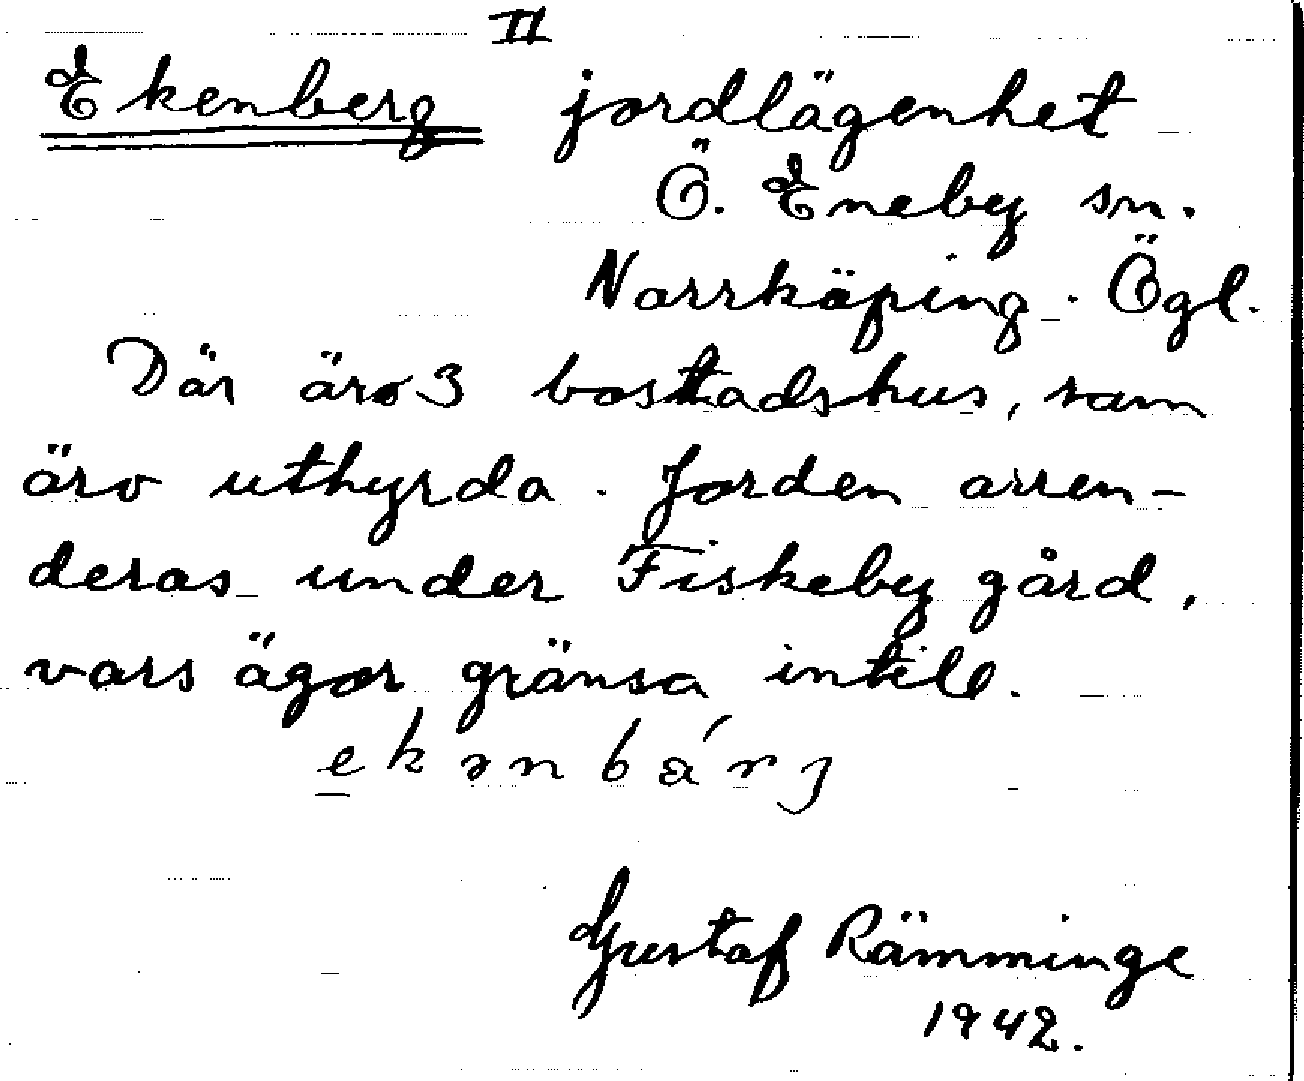 II
Ekenberg jordlägenhet
Ö. Eneby sn.
Norrköping. Ögl.
Där äro 3 bostadshus, som
äro uthyrda. Jorden arren-
deras under Fiskeby gård,
vars ägor gränsa intill.
ekənbárj
Gustaf Rämminge
1942.